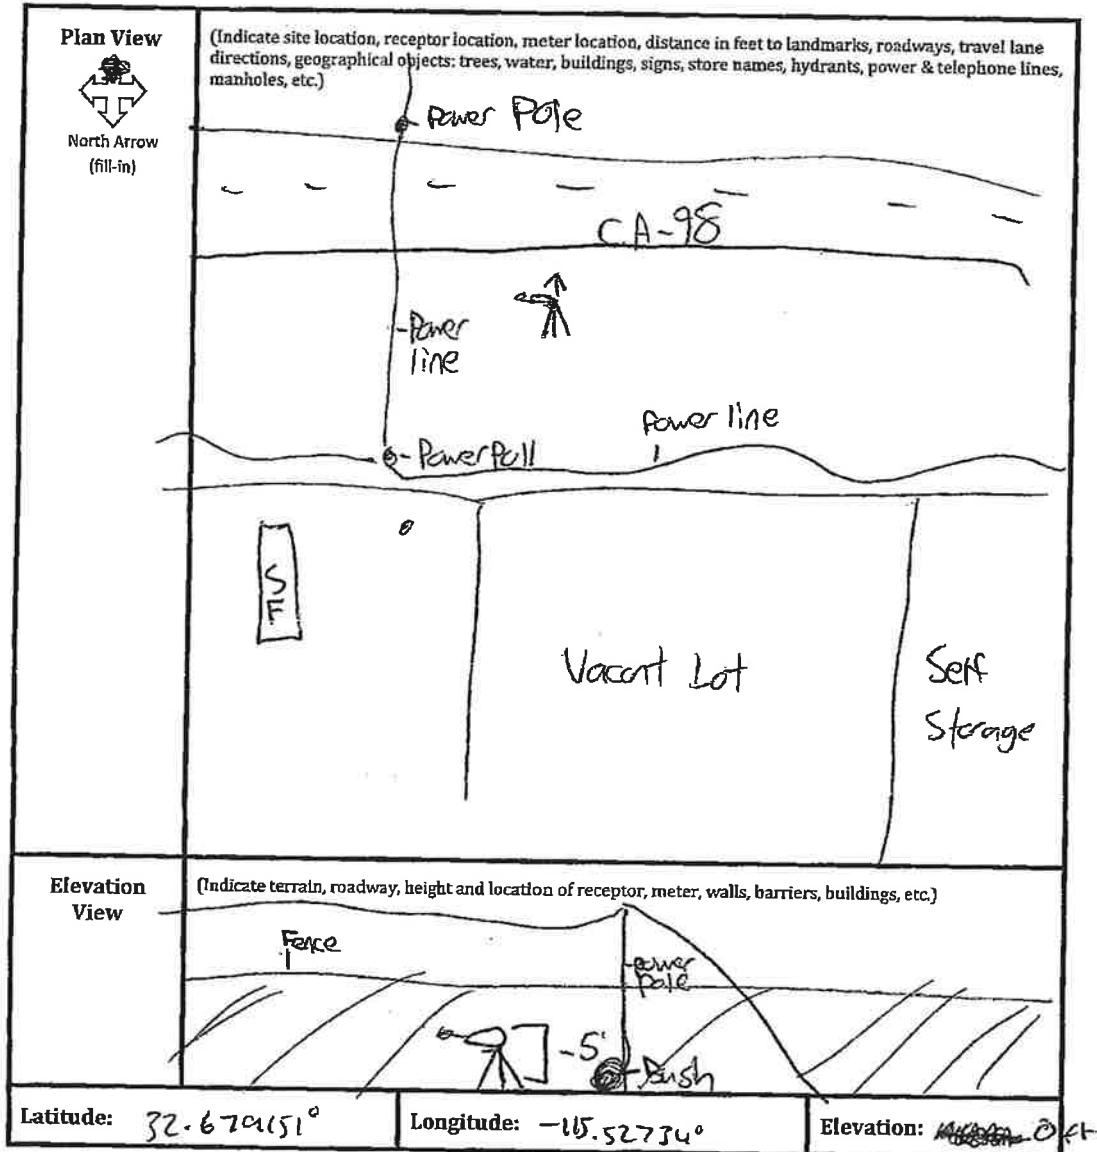 Plan View
North Arrow
(fill-in)
(Indicate site location, receptor location, meter location, distance in feet to landmarks, roadways, travel lane
directions, geographical objects: trees, water, buildings, signs, store names, hydrants, power & telephone lines,
manholes, etc.)
Power Pole
CA-98
Power
line
Power line
Power Poll
SF
Vacant Lot
Self
Storage
Elevation
View
(Indicate terrain, roadway, height and location of receptor, meter, walls, barriers, buildings, etc.)
Fence
power
pole
-5'
Bush
Latitude: 32.679151°
Longitude: -115.52734°
Elevation: 0 ft